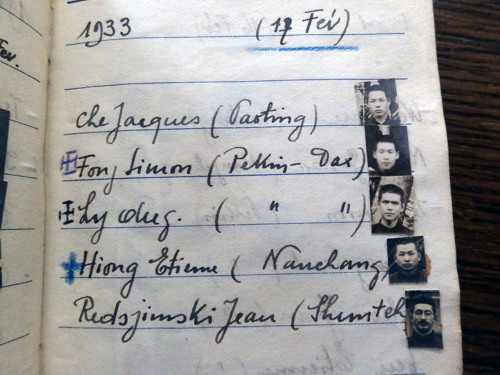 Fev.
1933 (17 Fév)
Che Jacques (Paoting)
Fong Simon (Pekin - Dax)
Ly Aug. ( " " )
Hiong Etienne ( Nanchang
Redsjimski Jean ( Shunteh